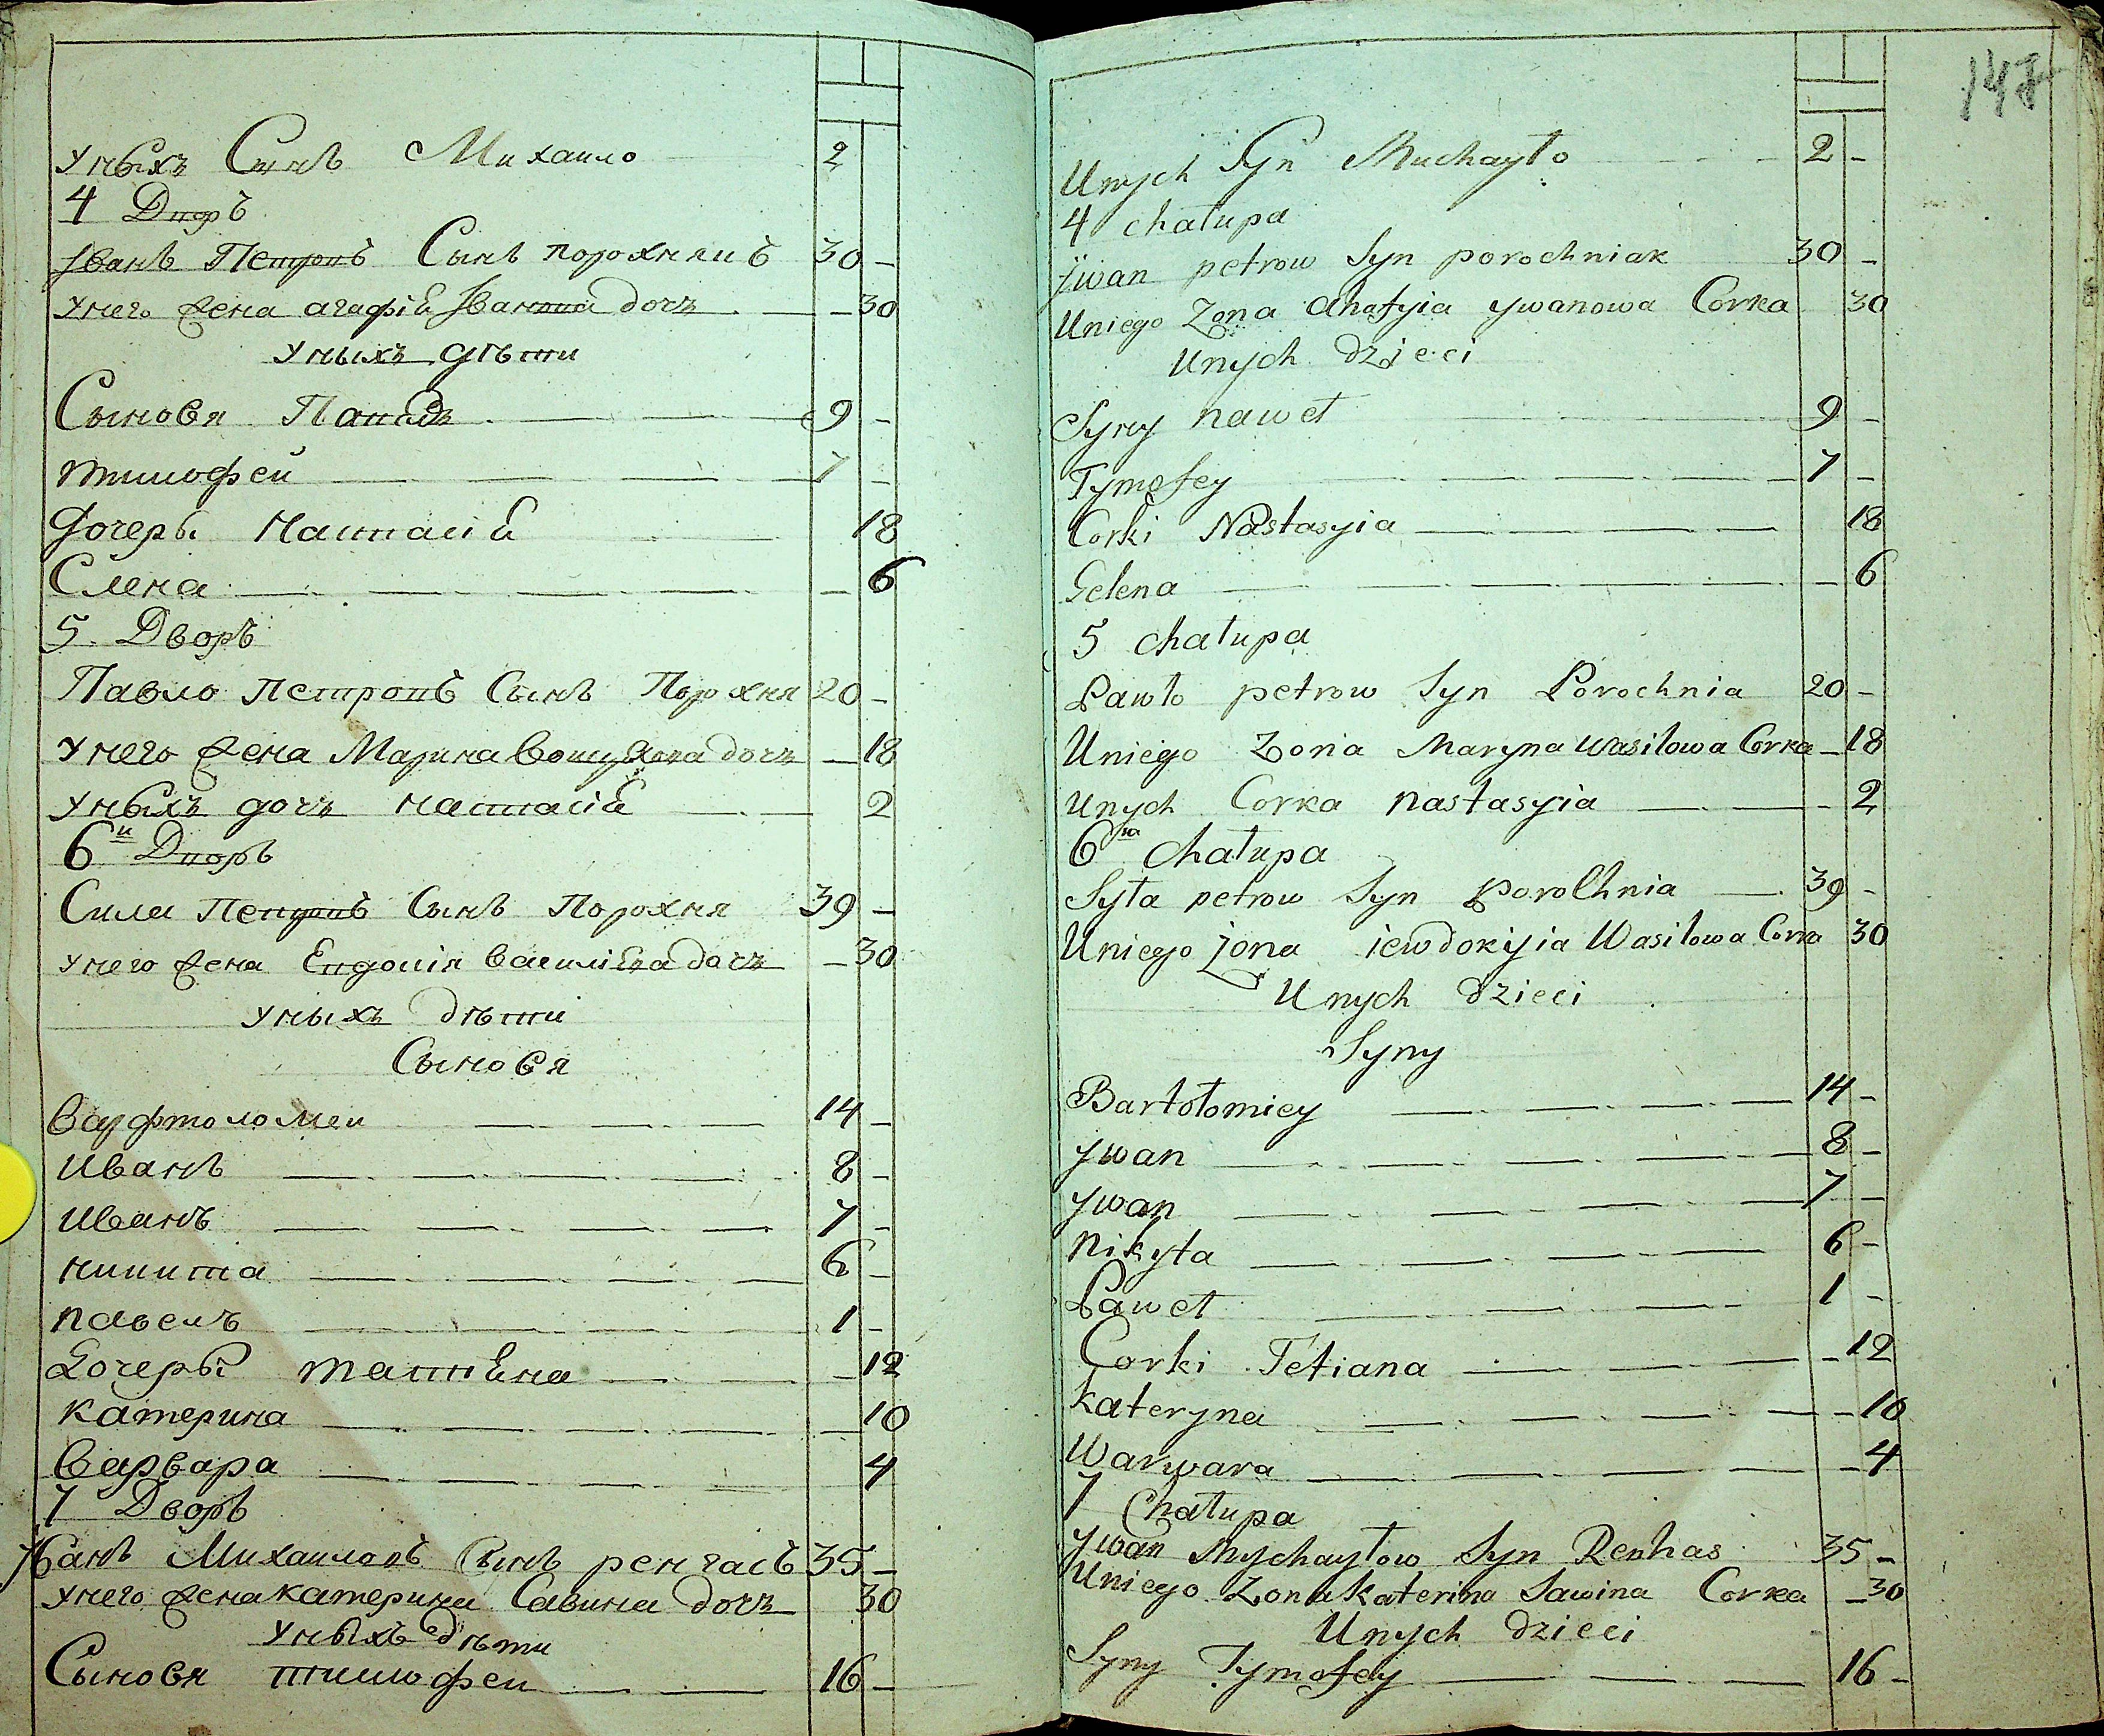 Уныхъ Сынъ Михаило 2
4 Дворъ
Іванъ Петровъ Сынъ порохнякъ 30 -
Унего жена агафія Іванова дочъ - 30
Уныхъ дѣти
Сыновя Павелъ 9 -
тимофей 7 -
Дочеры Настасія 18
Елена - 6
5 Дворъ
Павло Петровъ Сынъ Порохня 20 -
Унего жена Марина дочъ - 18
Уныхъ дочъ настасія 2
6й Дворъ
Сила Петровъ Сынъ Порохня 39 -
Унего жена Евдокія василіева дочъ - 30
Уныхъ дѣти
Сыновя
Варфтоломеи 14 -
Иванъ 8 -
Иванъ 7 -
никита 6 -
павелъ 1 -
Дочеры татіена - 12
катерина - 10
Варвара 4
7 Дворъ
Іванъ Михаиловъ Сынъ ренгасъ 35 -
Унего жена катерина Савина дочъ 30
Уныхъ дѣти
Сыновя тимофеи 16 -
147
Unych Syn Muchayło 2 -
4 chałupa
jwan petrow Syn porochniak 30 -
Uniego Zona ahafyia ywanowa Corka 30
Unych dzieci
Syny paweł 9 -
Tymofey 7 -
Corki Nastasyia 18
Gelena - 6
5 chałupa
Pawło petrow Syn Porochnia 20 -
Uniego Zona Maryna Wasilowa Corka - 18
Unych Corka nastasyia - 2
6ta Chałupa
Syła petrow Syn Porochnia 39 -
Uniego zona iewdokyia Wasilowa Corka 30
Unych dzieci
Syny
Bartołomiey 14 -
ywan 8 -
ywan 7 -
Nikyta 6 -
Paweł 1 -
Corki Tetiana - 12
kateryna - 10
Warwara - 4
7 Chałupa
ywan Mychayłow Syn Renhas 35 -
Uniego Zona katerina Sawina Corka - 30
Unych dzieci
Syny Tymofey 16 -